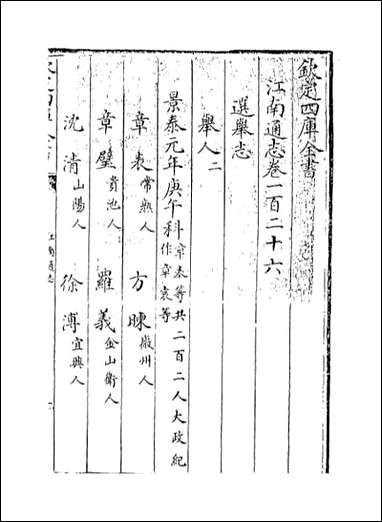 欽定四庫全書
江南通志卷一百二十六
選舉志
舉人二
景泰元年庚午科章表等共二百二人大政紀作章袁等
章表常熟人 方暕徽州人
章璧貴池人 羅義金山衛人
沈清山陽人 徐溥宜興人
江南通志